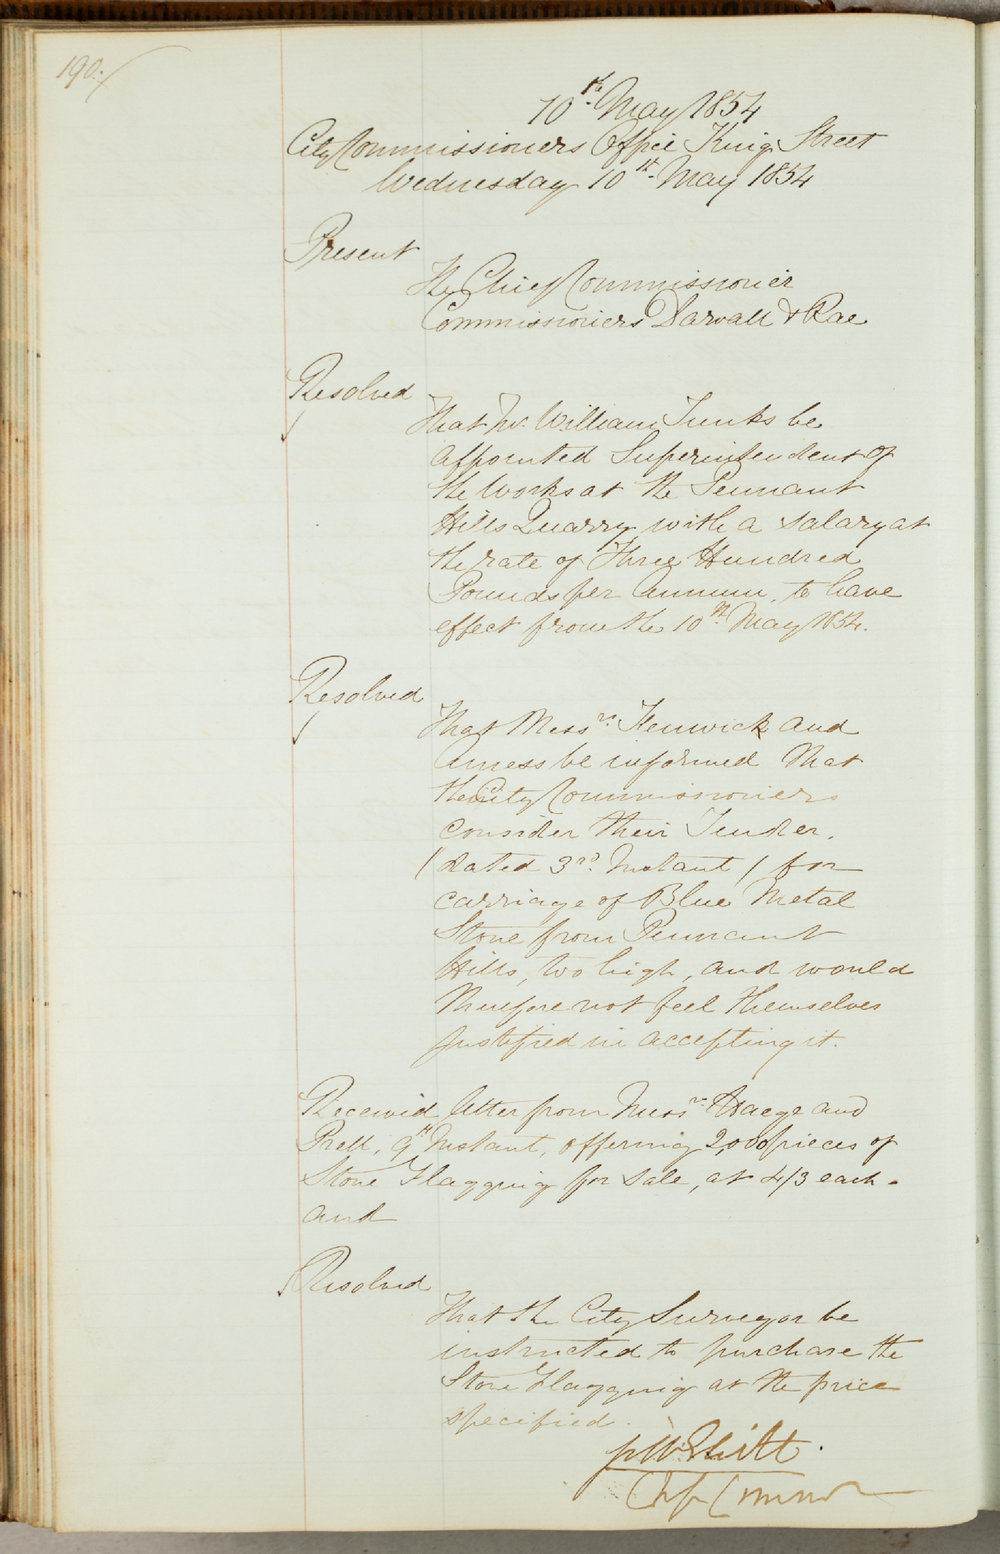 190.
10th May 1854
City Commissioners Office King Street
Wednesday 10th May 1854
Present
The Chief Commissioner
Commissioners Darvall & Rae
Resolved
That Mr. William Tunks be
appointed Superintendent of
the Works at the Pennant
Hills Quarry with a salary at
the rate of Three Hundred
Pounds per Annum, to have
effect from the 10th May 1854.
Resolved
That Messrs. Fenwick and
Amess be informed that
the City Commissioners
consider their Tender,
(dated 3rd. Instant) for
carriage of Blue Metal
Stone from Pennant
Hills, too high, and would
therefore not feel themselves
justified in accepting it.
Received letter from Messrs. Haege and
Prell, 9th Instant, offering 2,000 pieces of
Stone Flagging for sale, at 4/3 each.
and
Resolved
That the City Surveyor be
instructed to purchase the
Stone Flagging at the price
specified.
Chf Commr